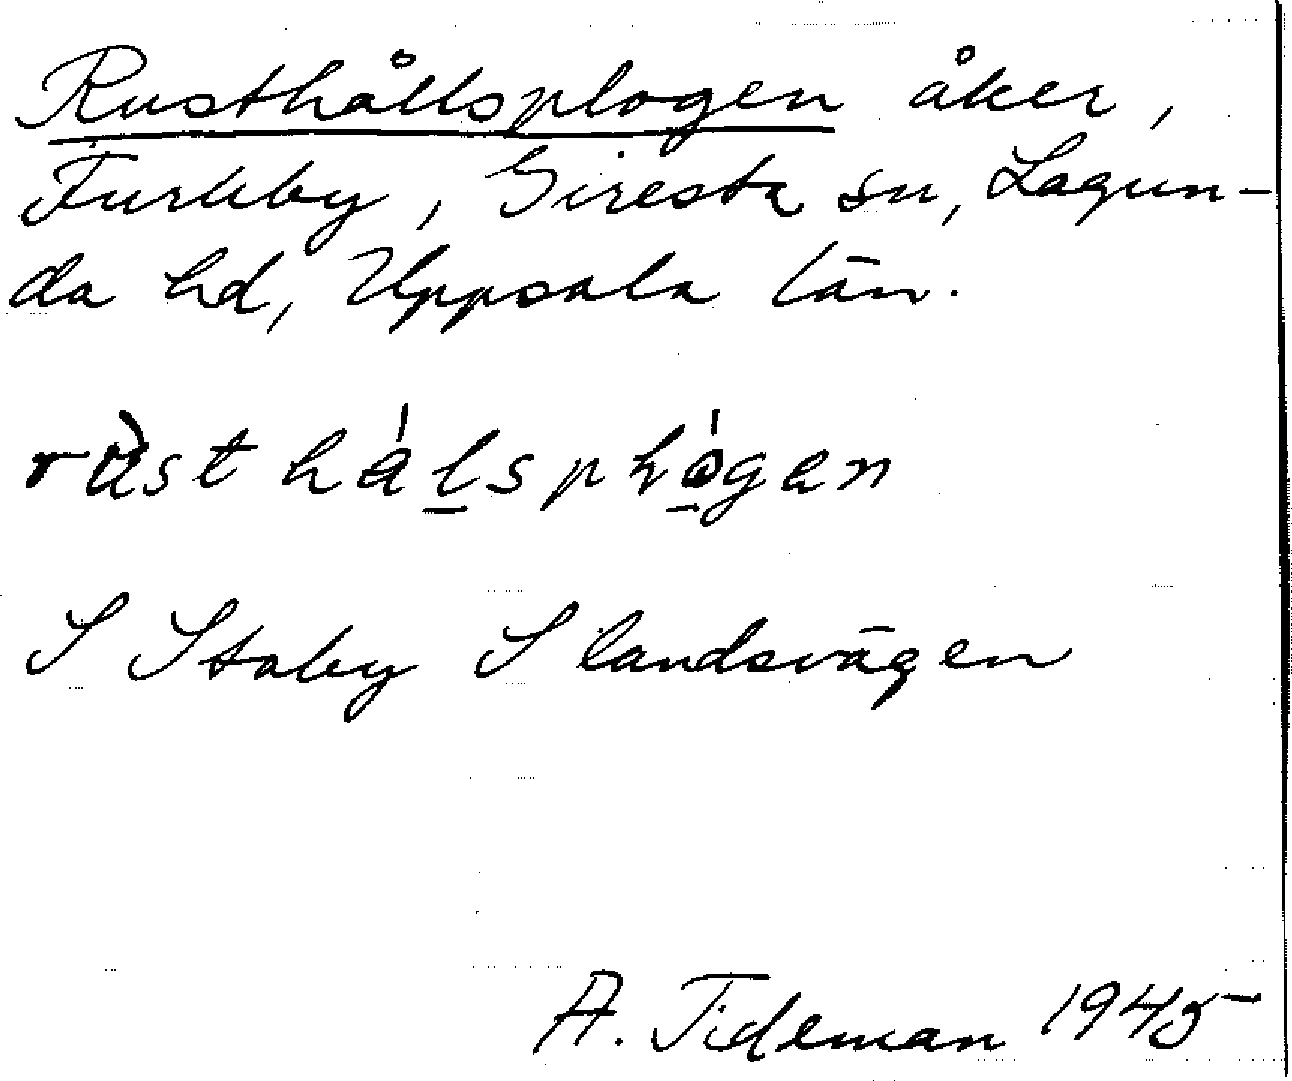 Rusthållsplogen åker,
Furkby, Giresta sn, Lagun-
da hd, Uppsala län.
S Staby S landsvägen
A. Tideman 1945